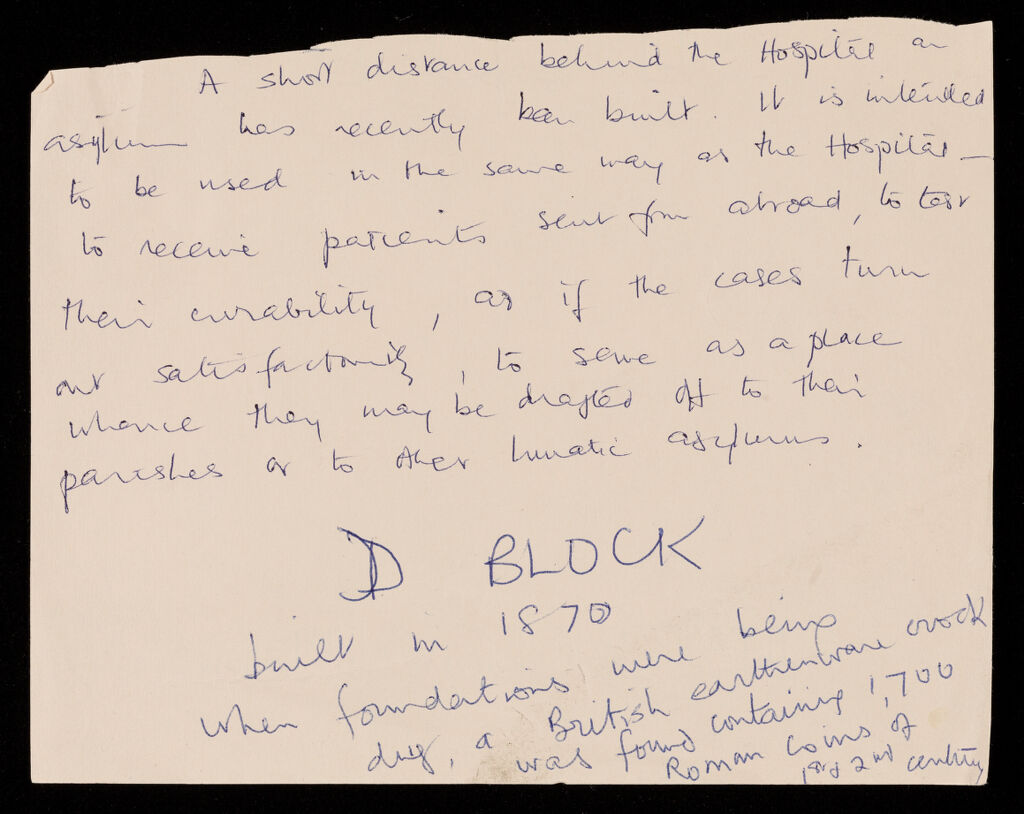 A short distance behind the Hospital an
asylum has recently been built. It is intended
to be used in the same way as the Hospital –
to receive patients sent from abroad, to test
their curability, as if the cases turn
out satisfactorily, to serve as a place
whence they may be drafted off to their
parishes or to other lunatic asylums.
D BLOCK
built in 1870
when foundations were being
dug, a British earthenware crock
was found containing 1,700
Roman Coins of
1st & 2nd century